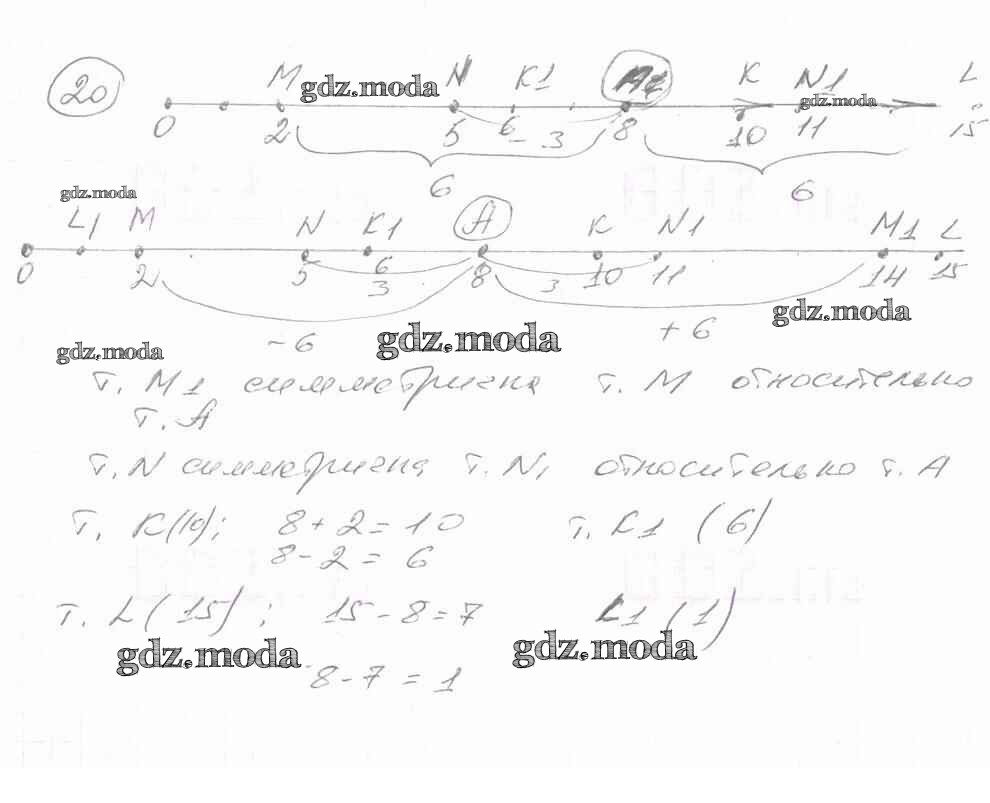 20
M gdz.moda N K1 A K N1 L
gdz.moda
0 2 5 6 8 10 11 15
3
6 6
gdz.moda
L1 M N K1 A K N1 M1 L
0 2 5 6 8 10 11 14 15
3 3
gdz.moda
-6 gdz.moda +6
gdz.moda
т. M1 симметрична т. M относительно
т. A
т. N симметрична т. N1 относительно т. A
т. K(10); 8+2=10 т. K1 (6)
8-2=6
т. L(15); 15-8=7 L1 (1)
gdz.moda gdz.moda
8-7=1